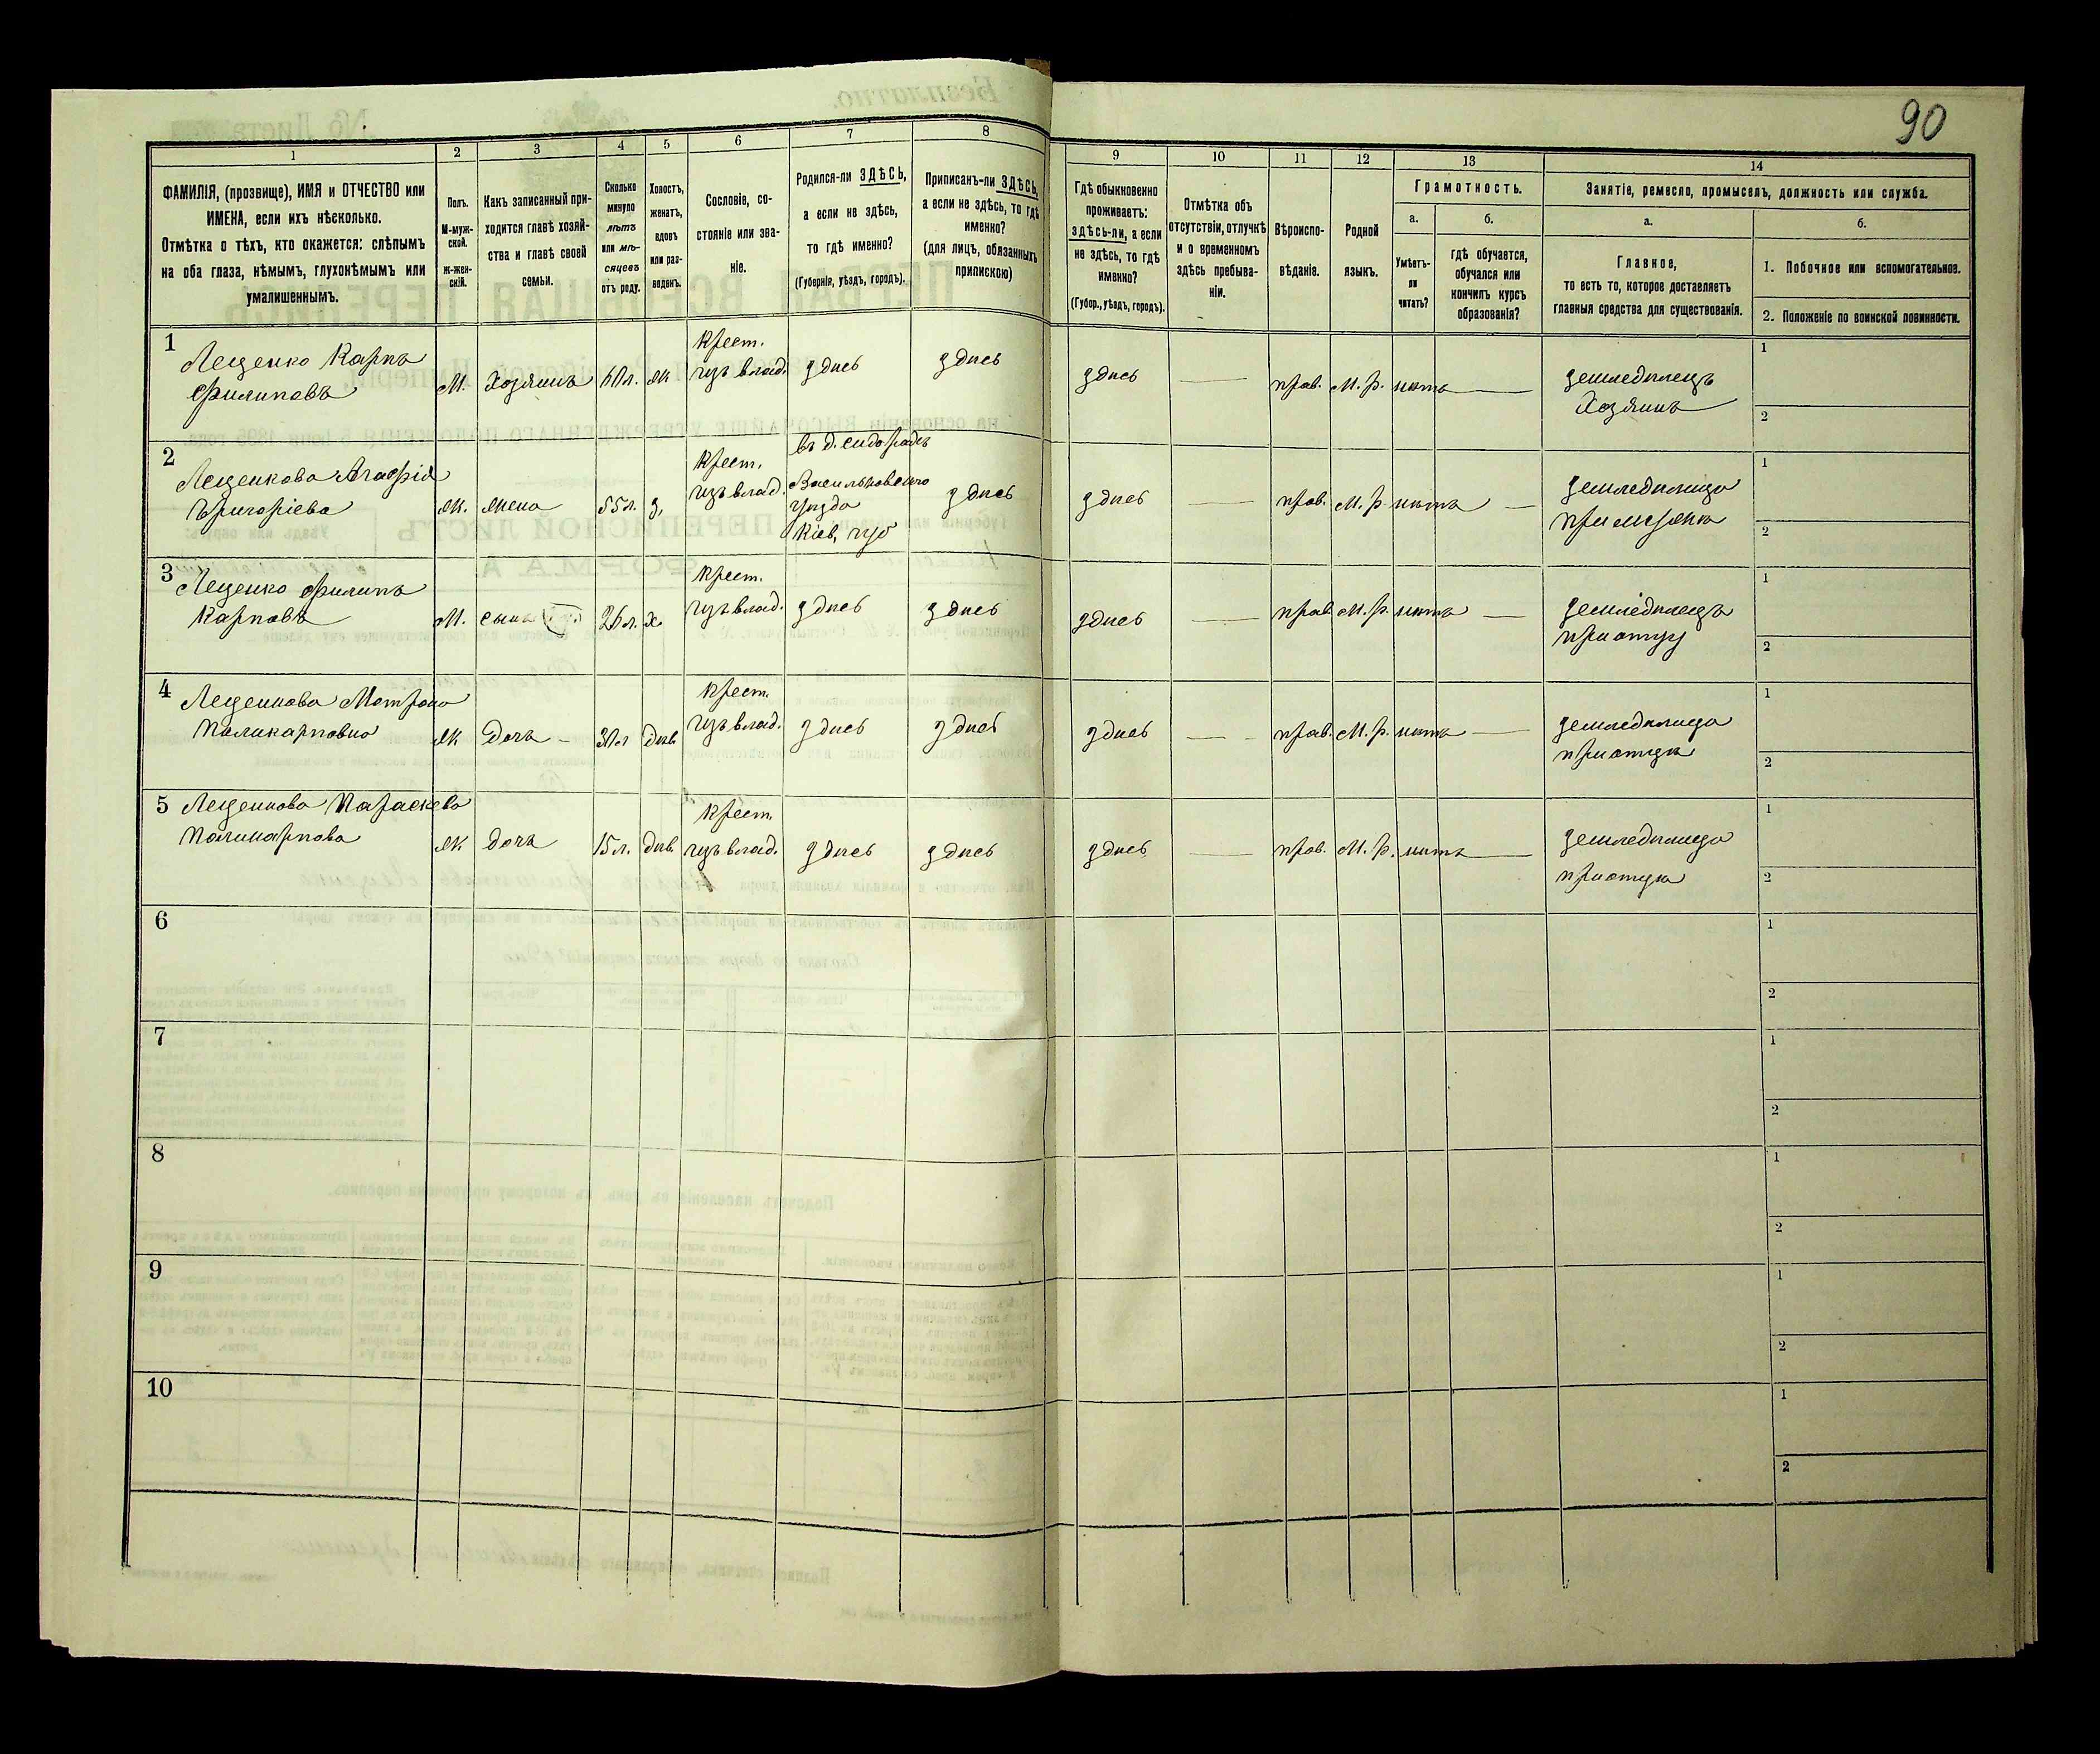 90
1
2
3
4
5
6
7
8
9
10
11
12
13
14
ФАМИЛІЯ, (прозвище), ИМЯ и ОТЧЕСТВО или
ИМЕНА, если ихъ нѣсколько.
Отмѣтка о тѣхъ, кто окажется: слѣпымъ
на оба глаза, нѣмымъ, глухонѣмымъ или
умалишеннымъ.
Полъ.
М-муж-
ской.
Ж-жен-
скій.
Какъ записанный при-
ходится главѣ хозяй-
ства и главѣ своей
семьи.
Сколько
минуло
лѣтъ
или мѣ-
сяцевъ
отъ роду.
Холостъ,
женатъ,
вдовъ
или раз-
веденъ.
Сословіе, со-
стояніе или зва-
ніе.
Родился-ли ЗДѢСЬ,
а если не здѣсь,
то гдѣ именно?
(Губернія, уѣздъ, городъ).
Приписанъ-ли ЗДѢСЬ,
а если не здѣсь, то гдѣ
именно?
(для лицъ, обязанныхъ
припискою)
Гдѣ обыкновенно
проживаетъ:
здѣсь-ли, а если
не здѣсь, то гдѣ
именно?
(Губер., уѣздъ, городъ).
Отмѣтка объ
отсутствіи, отлучкѣ
и о временномъ
здѣсь пребыва-
ніи.
Вѣроиспо-
вѣданіе.
Родной
языкъ.
Грамотность.
а.
Умѣетъ-
ли
читать?
б.
Гдѣ обучается,
обучался или
кончилъ курсъ
образованія?
Занятіе, ремесло, промыселъ, должность или служба.
а.
Главное,
то есть то, которое доставляетъ
главныя средства для существованія.
б.
1. Побочное или вспомогательное.
2. Положеніе по воинской повинности.
1
Лещенко Карпъ
Филиповъ
М.
Хозяинъ
60л.
ж
Крест.
изъ влад.
здѣсь
здѣсь
здѣсь
прав.
М. р.
нѣтъ
земледѣлецъ
Хозяинъ
1
2
2
Лещенкова Агафія
Григоріева
ж.
жена
55л.
з.
Крест.
изъ влад.
Васильковскаго
уѣзда
Кіев. губ
здѣсь
здѣсь
прав.
М. р
нѣтъ
земледѣлица
при мужѣ
1
2
3
Лещенко Филипъ
Карповъ
М.
сынъ
26л.
х
Крест.
изъ влад.
здѣсь
здѣсь
здѣсь
прав
М. р.
нѣтъ
земледѣлецъ
при отцу
1
2
4
Лещенкова Мотрона
Поликарповна
ж
дочь
30л
дѣв.
Крест.
изъ влад.
здѣсь
здѣсь
здѣсь
прав.
М. р.
нѣтъ
земледѣлица
при отцѣ
1
2
5
Лещенкова Параскева
Поликарпова
ж
дочь
15л.
дѣв.
Крест.
изъ влад.
здѣсь
здѣсь
здѣсь
прав.
М. р.
нѣтъ
земледѣлица
при отцѣ
1
2
6
1
2
7
1
2
8
1
2
9
1
2
10
1
2